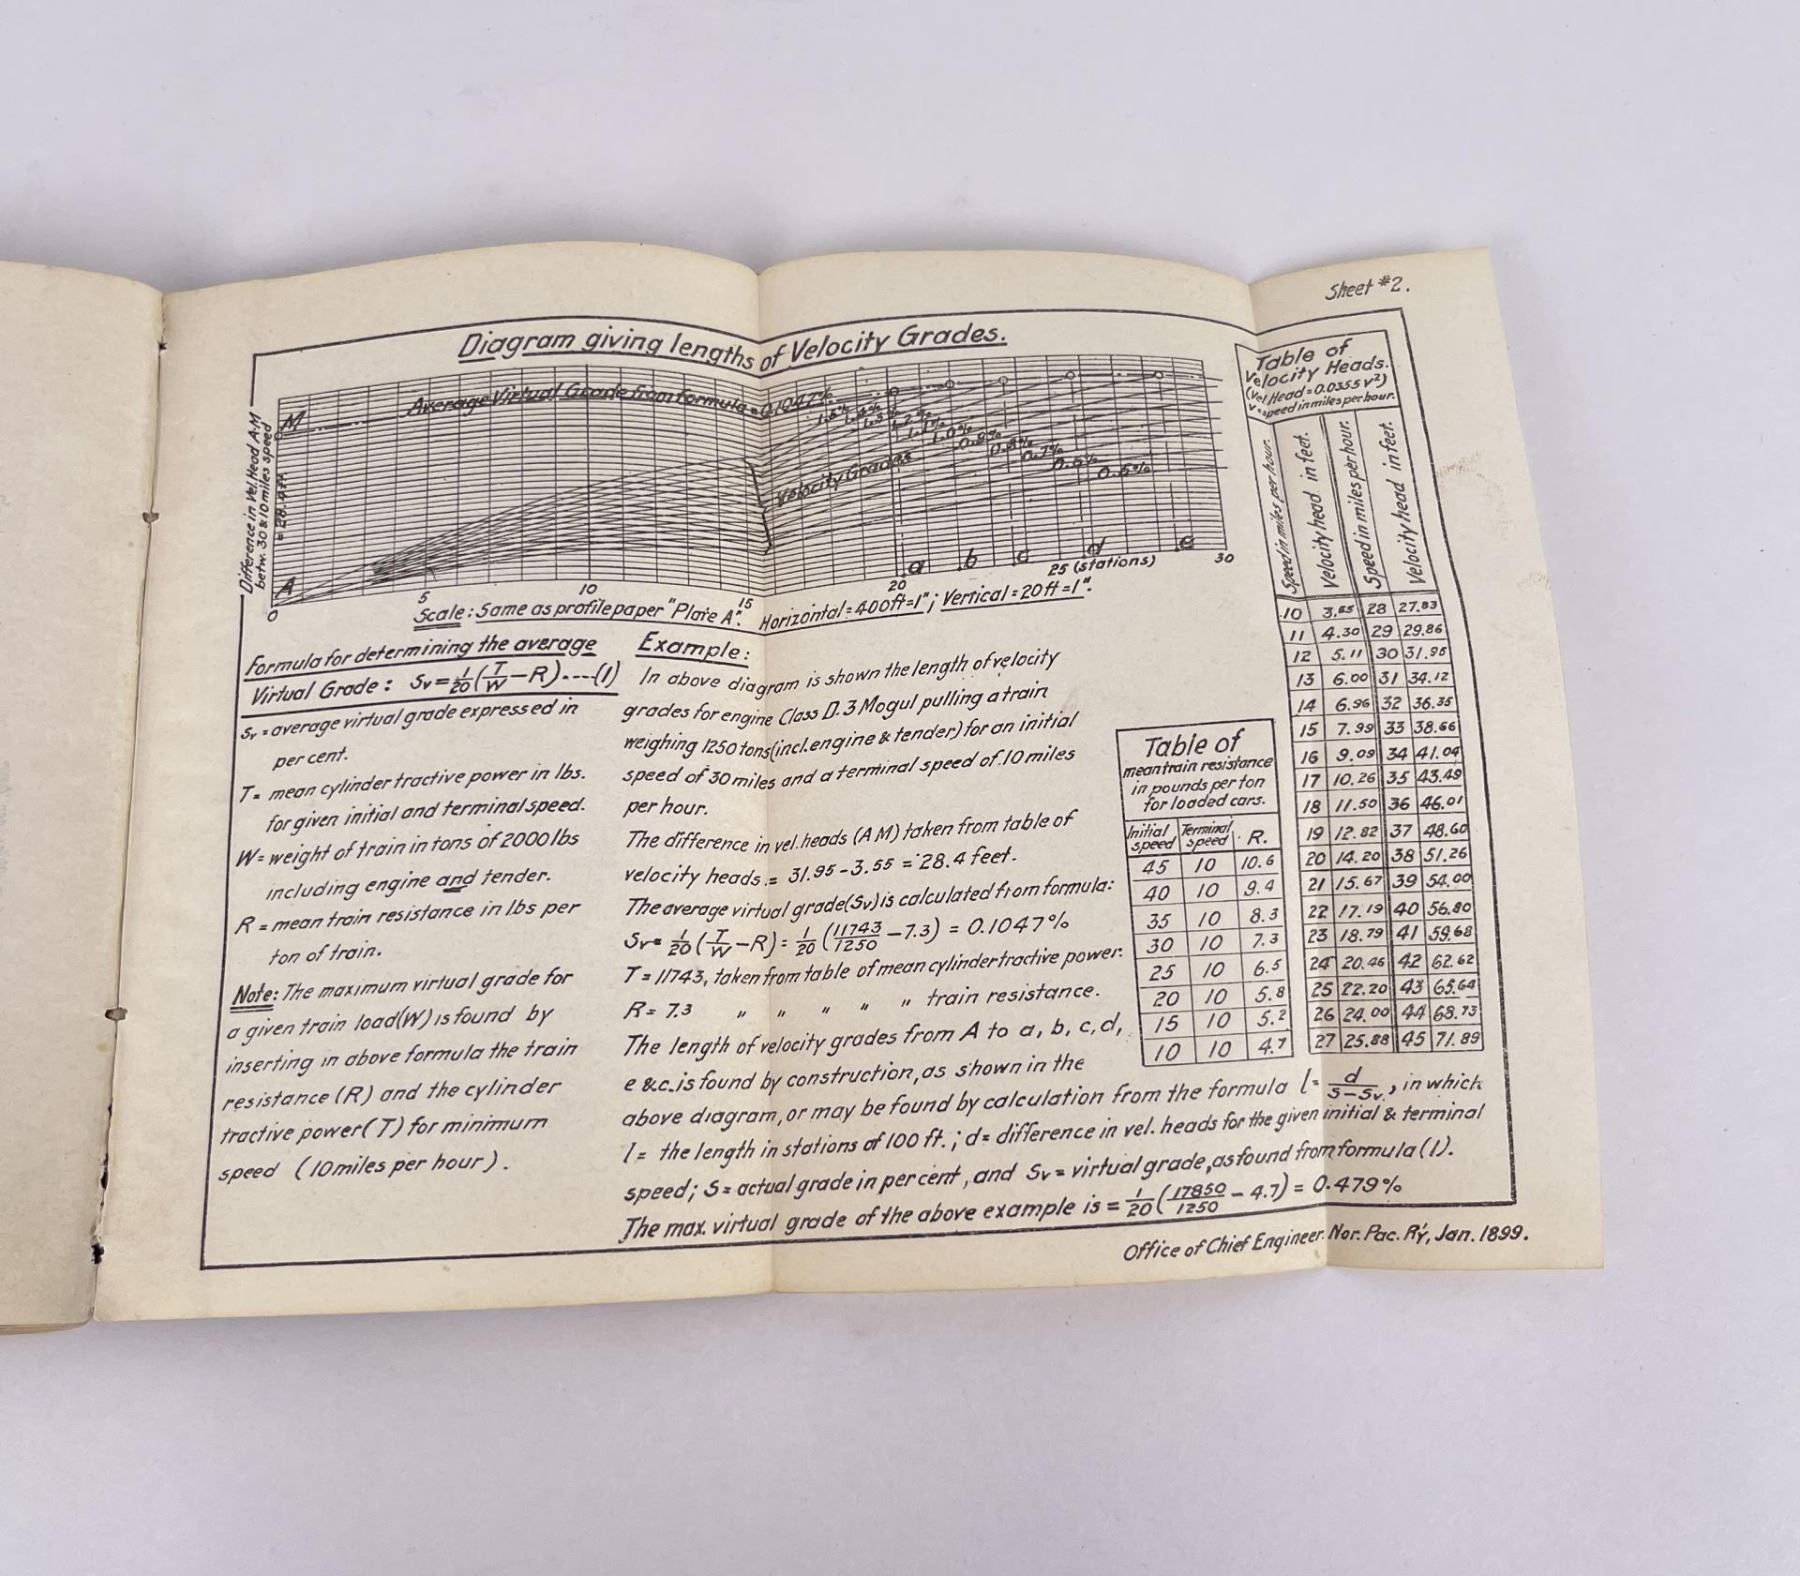 Sheet #2.
Diagram giving lengths of Velocity Grades.
Difference in Vel. Head A-M
betw. 30 & 10 miles speed
= 28.4 ft.
M
A
Average Virtual Grade from formula = 0.1047%
1.0%
0.9%
0.8%
0.7%
0.6%
0.5%
Velocity Grades
a b c d e
0 5 10 15 20 25 (stations) 30
Scale: Same as profile paper "Plate A". Horizontal = 400 ft = 1"; Vertical = 20 ft = 1".
Formula for determining the average
Virtual Grade: Sv = 1/20 (T/W − R) ----(1)
Sv = average virtual grade expressed in
per cent.
T = mean cylinder tractive power in lbs.
for given initial and terminal speed.
W = weight of train in tons of 2000 lbs
including engine and tender.
R = mean train resistance in lbs per
ton of train.
Note: The maximum virtual grade for
a given train load (W) is found by
inserting in above formula the train
resistance (R) and the cylinder
tractive power (T) for minimum
speed (10 miles per hour).
Example:
In above diagram is shown the length of velocity
grades for engine Class D.3 Mogul pulling a train
weighing 1250 tons (incl. engine & tender) for an initial
speed of 30 miles and a terminal speed of 10 miles
per hour.
The difference in vel. heads (AM) taken from table of
velocity heads = 31.95 - 3.55 = 28.4 feet.
The average virtual grade (Sv) is calculated from formula:
Sv = 1/20 (T/W − R) = 1/20 (11743/1250 − 7.3) = 0.1047%
T = 11743, taken from table of mean cylinder tractive power.
R = 7.3 " " " " " train resistance.
The length of velocity grades from A to a, b, c, d,
e &c. is found by construction, as shown in the
above diagram, or may be found by calculation from the formula l = d/(S−Sv), in which
l = the length in stations of 100 ft.; d = difference in vel. heads for the given initial & terminal
speed; S = actual grade in per cent, and Sv = virtual grade, as found from formula (1).
The max. virtual grade of the above example is = 1/20 (17850/1250 − 4.7) = 0.479%
Table of
mean train resistance
in pounds per ton
for loaded cars.
Initial speed Terminal speed R.
45 10 10.6
40 10 9.4
35 10 8.3
30 10 7.3
25 10 6.5
20 10 5.8
15 10 5.2
10 10 4.7
Table of
Velocity Heads.
(Vel. Head = 0.0355 V²)
V = speed in miles per hour.
Speed in miles per hour. Velocity head in feet. Speed in miles per hour. Velocity head in feet.
10 3.55 28 27.83
11 4.30 29 29.86
12 5.11 30 31.95
13 6.00 31 34.12
14 6.96 32 36.35
15 7.99 33 38.66
16 9.09 34 41.04
17 10.26 35 43.49
18 11.50 36 46.01
19 12.82 37 48.60
20 14.20 38 51.26
21 15.67 39 54.00
22 17.19 40 56.80
23 18.79 41 59.68
24 20.46 42 62.62
25 22.20 43 65.64
26 24.00 44 68.73
27 25.88 45 71.89
Office of Chief Engineer. Nor. Pac. R'y, Jan. 1899.